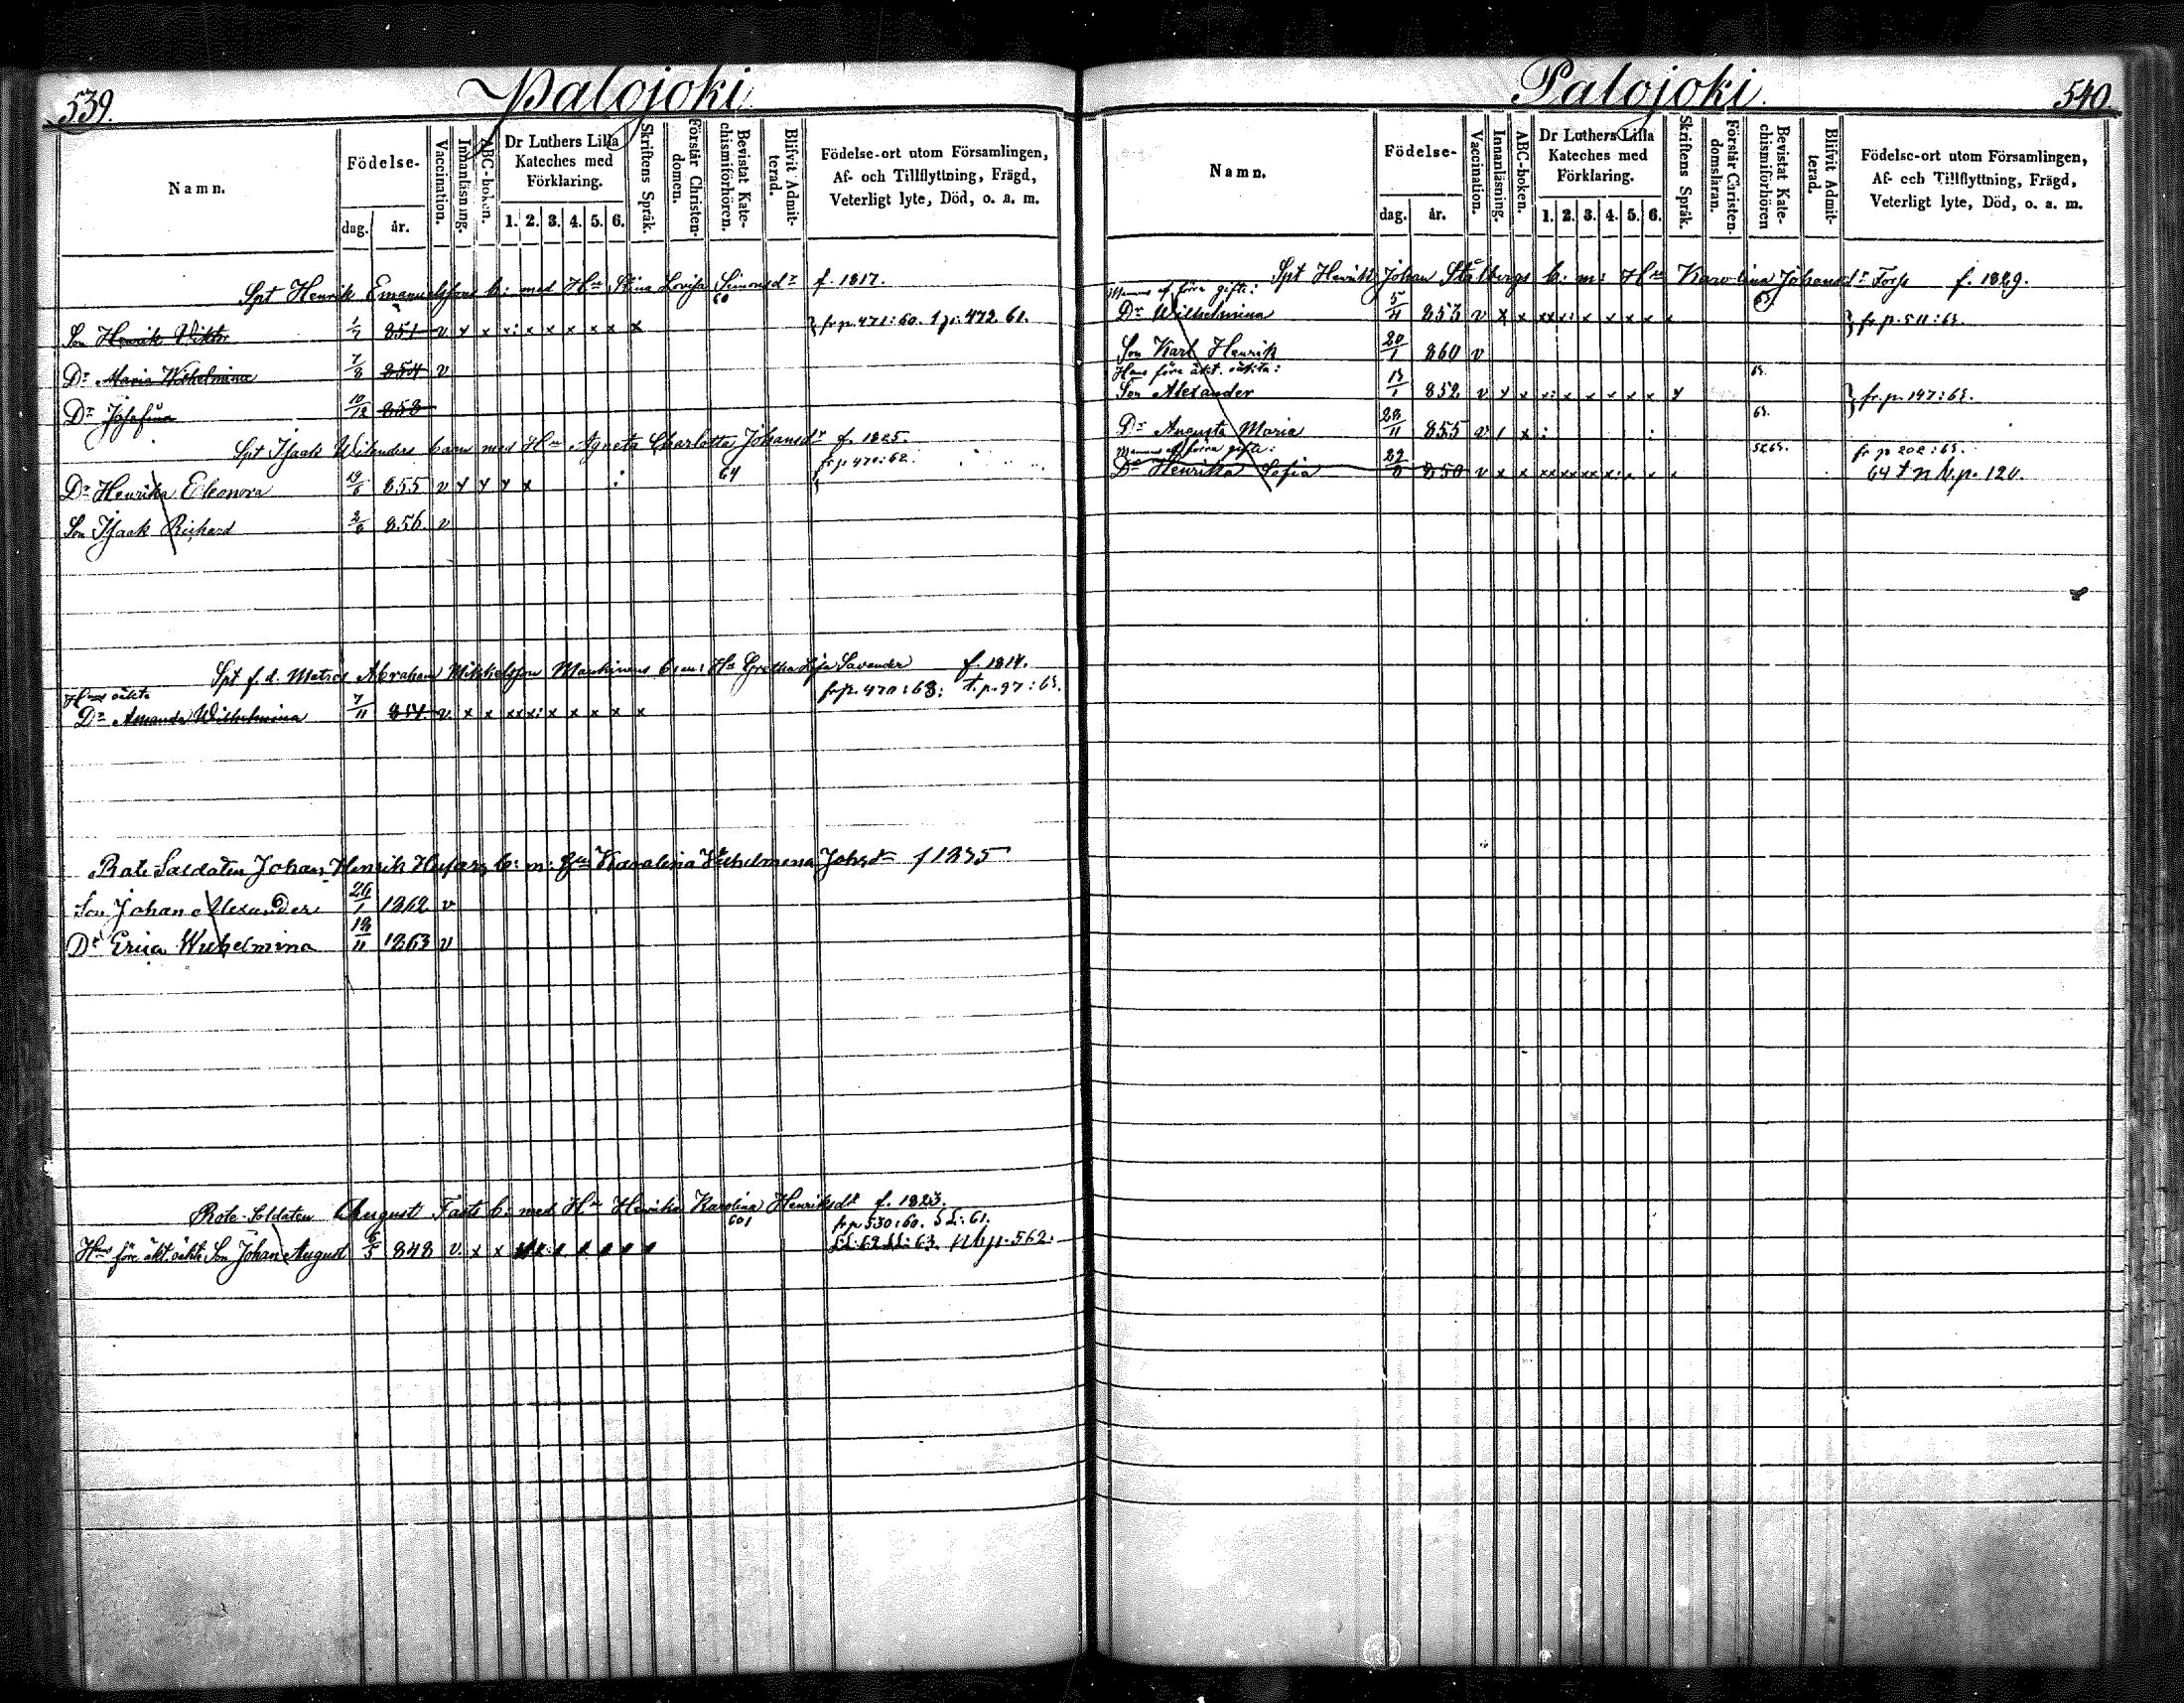 539.
Palojoki
Namn.
Födelse-
dag. år.
Vaccination.
Innanläsning.
ABC-boken.
Dr Luthers Lilla Kateches med Förklaring.
1. 2. 3. 4. 5. 6.
Skriftens Språk.
Förstår Christendomen.
Bevistat Katechismiförhören.
Blifvit Admitterad.
Födelse-ort utom Församlingen, Af- och Tillflyttning, Frägd, Veterligt lyte, Död, o. a. m.
Spt Henrik Emanuelsson b: med Hu Stina Lovisa Simonsdr f. 1817.
60
Son Henrik Viktor 851 v x x x: x x x x x x } fr. p. 471: 60. t p: 472 61.
Dr Maria Wilhelmina 7/8 854 v
Dr Josefina 10/12 858
Spt Isaak Wilenders barn med Hu Agneta Charlotta Johansdr f. 1825.
fr p 470: 62.
Dr Henrika Eleonora 855 v 64
Son Isaak Richard 2/8 856 v
Spt f. d. Matros Abraham Mikkelsson b: m: Hu Gretha Lisa Lavander f. 1814.
Hans oäkta fr p. 470: 63: t. p. 97: 65.
Dr Amanda Wilhelmina 7/11 854 v. x x xx x: x x x x x
Rote Soldaten Johan Henrik b: m: Hu Karolina Wilhelmina Johsdr f 1835
Son Johan Alexander 26/1 1862 v
Dr Erica Wilhelmina 18/11 1863 v
Rote-Soldaten August Fast b: med Hu Henrika Karolina Henriksdr f. 1823.
601 fr p 530: 60. 61.
Hans före äkt. oäkta Son Johan August 6/5 848 v. x x 62 63. n b p. 562.
Palojoki.
540
Namn.
Födelse-
dag. år.
Vaccination.
Innanläsning.
ABC-boken.
Dr Luthers Lilla Kateches med Förklaring.
1. 2. 3. 4. 5. 6.
Skriftens Språk.
Förstår Christendomsläran.
Bevistat Katechismiförhören
Blifvit Admitterad.
Födelse-ort utom Församlingen, Af- och Tillflyttning, Frägd, Veterligt lyte, Död, o. a. m.
Spt Henrik Johan Stålbergs b: m: Hu Karolina Johansdr Forss f. 1829.
Mannens af förra gifte:
Dr Wilhelmina 5/11 853 v x x xx x: x x x x x } fr. p. 511: 65.
Son Karl Henrik 20/1 860 v
Hans före äkt. oäkta: 65.
Son Alexander 13/1 852 v } fr. p. 147: 65.
65.
Dr Augusta Maria 28/11 855 v
Mannens af förra gifte: fr p 202: 65.
Dr Henrika Sofia 850 v x x 64 t n b. p. 120.